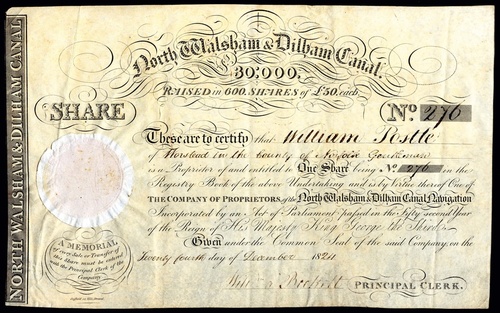 NORTH WALSHAM & DILHAM CANAL
North Walsham & Dilham Canal.
30,000.
RAISED in 600 SHARES of £50 each.
SHARE
No. 276
These are to certify that William Postle
of Worstead in the County of Norfolk Gentleman
is a Proprietor of and entitled to One Share being No. 276 in the
Registry Book of the above Undertaking and is by virtue thereof One of
THE COMPANY OF PROPRIETORS of the North Walsham & Dilham Canal Navigation
Incorporated by an Act of Parliament passed in the Fifty second Year
of the Reign of His Majesty King George the Third.
Given under the Common Seal of the said Company, on the
Twenty fourth day of December 1824
PRINCIPAL CLERK.
A MEMORIAL
of every Sale or Transfer of
this Share must be entered
with the Principal Clerk of the
Company.